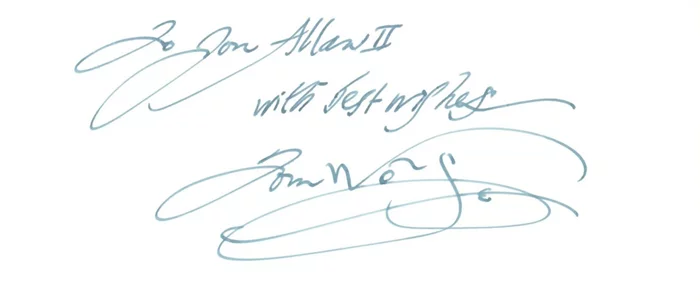 To Don Allan II
with best wishes
Tom Wolfe